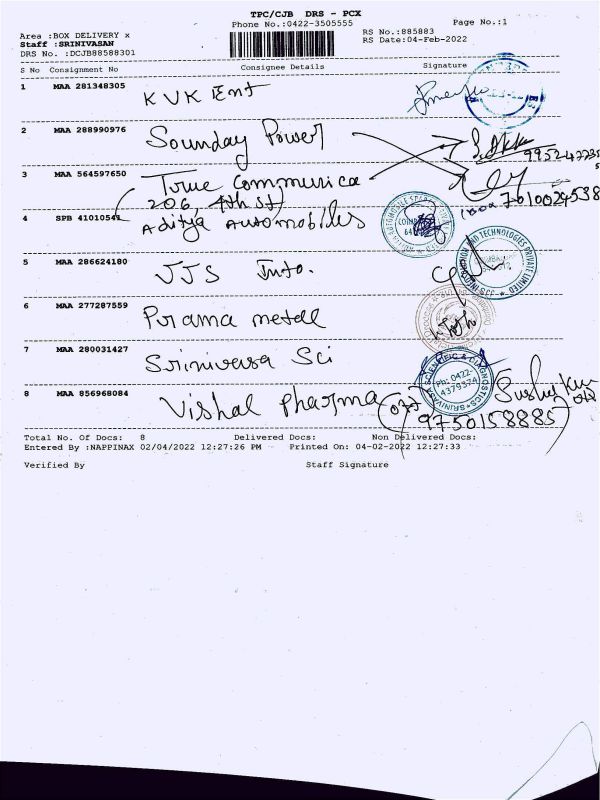 TPC/CJB DRS - PCX
Phone No.:0422-3505555
Page No.:1
Area :BOX DELIVERY x
Staff :SRINIVASAN
DRS No. :DCJB88588301
RS No.:885883
RS Date:04-Feb-2022
S No Consignment No Consignee Details Signature
1 MAA 281348305 KVK Ent
2 MAA 288990976 Sounday Power
99524
3 MAA 564597650 True Communica
206, 4th St
7010029538
4 SPB 41010541 Aditya Automobiles
5 MAA 286624180 JJS Info.
6 MAA 277287559 Prama metal
7 MAA 280031427 Srinivasa Sci
Ph: 0422-
4379374
8 MAA 856968084 Vishal Pharma
9750158885
Total No. Of Docs: 8 Delivered Docs: Non Delivered Docs:
Entered By :NAPPINAX 02/04/2022 12:27:26 PM Printed On: 04-02-2022 12:27:33
Verified By Staff Signature